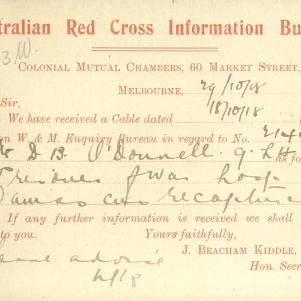 tralian Red Cross Information Bu
3 W.
COLONIAL MUTUAL CHAMBERS, 60 MARKET STREET,
MELBOURNE, 29/10/18
Sir,
18/10/18
We have received a Cable dated
on W. & M. Enquiry Bureau in regard to No. 214
D B O'Donnell 9. LH as fo
Prisoner of War hosp
Damascus recapture
If any further information is received we shall
to you.
Yours faithfully,
J. BEACHAM KIDDLE,
Hon. Secr